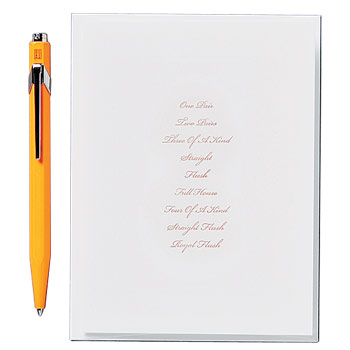 One Pair
Two Pairs
Three Of A Kind
Straight
Flush
Full House
Four Of A Kind
Straight Flush
Royal Flush